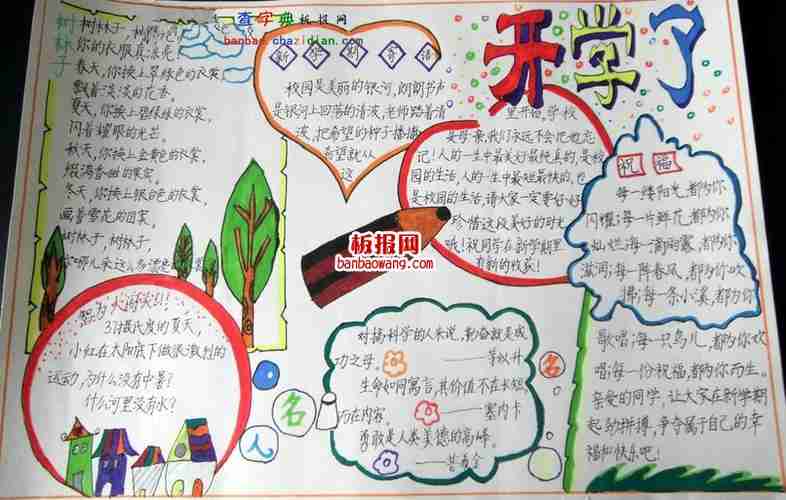 查字典板报网
banbao.chazidian.com
开学了
树林子
树林子,树
你的衣服真漂亮!
春天,你换上翠绿色的衣裳
飘着淡淡的花香。
夏天,你换上碧绿的衣裳,
闪着耀眼的光芒。
秋天,你换上金黄色的衣裳
缀满香甜的果实,
冬天,你换上银白色的衣裳
画着雪花的图案,
树林子,树林子,
新学期寄语
校园是美丽的银河,朗朗书声
是银河上回荡的清波,老师踏着清
波,把希望的种子播撒
希望就从
这
里开始,学校
是母亲,我们永远不会把她忘
记!人的一生中最美好最纯真的,是校
园的生活,人的一生中最短最快的,也
是校园的生活,请大家一定要好好
珍惜这段美好的时光
哦!祝同学在新学期里
有新的收获!
祝福
每一缕阳光,都为你
闪耀;每一片鲜花,都为你
灿烂;每一滴雨露,都为你
滋润;每一阵春风,都为你吹
拂;每一条小溪,都为你
歌唱;每一只鸟儿,都为你欢
唱;每一份祝福,都为你而生。
亲爱的同学,让大家在新学期
起的拼搏,争夺属于自己的幸
福和快乐吧!
板报网
banbaowang.com
37摄氏度的夏天,
小红在太阳底下做很激烈的
运动,为什么没有中暑?
什么河里没有水?
对搞科学的人来说,勤奋就是成
功之母。
——茅以升
生命如同寓言,其价值不在长短,
巧在内容。——塞内卡
勇敢是人类美德的高峰。
人名名